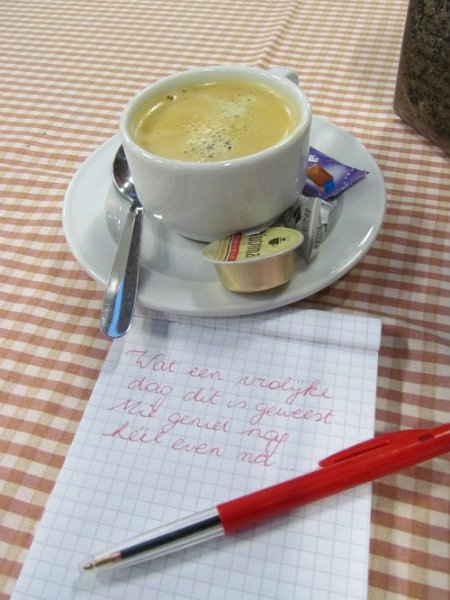 Wat een vrolijke
dag dit is geweest...
Mit geniet nog
héél even na...